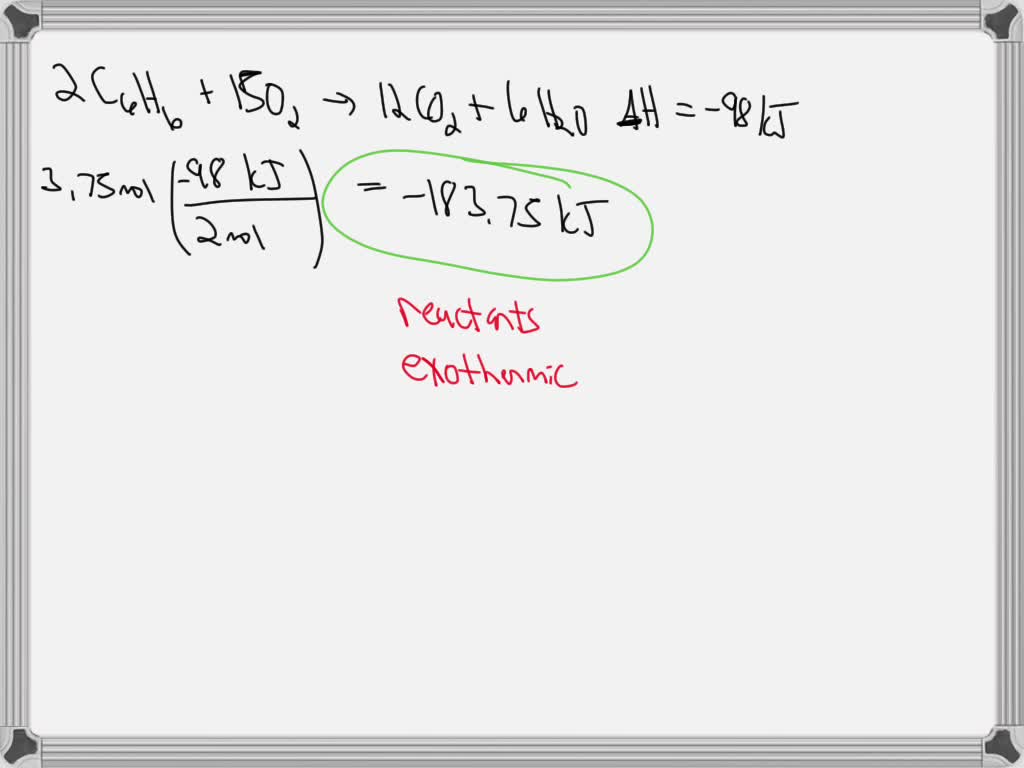 2C₆H₆ + 15O₂ → 12CO₂ + 6H₂O ΔH = -98 kJ
3.75 mol (-98 kJ / 2 mol) = -183.75 kJ
reactants
exothermic